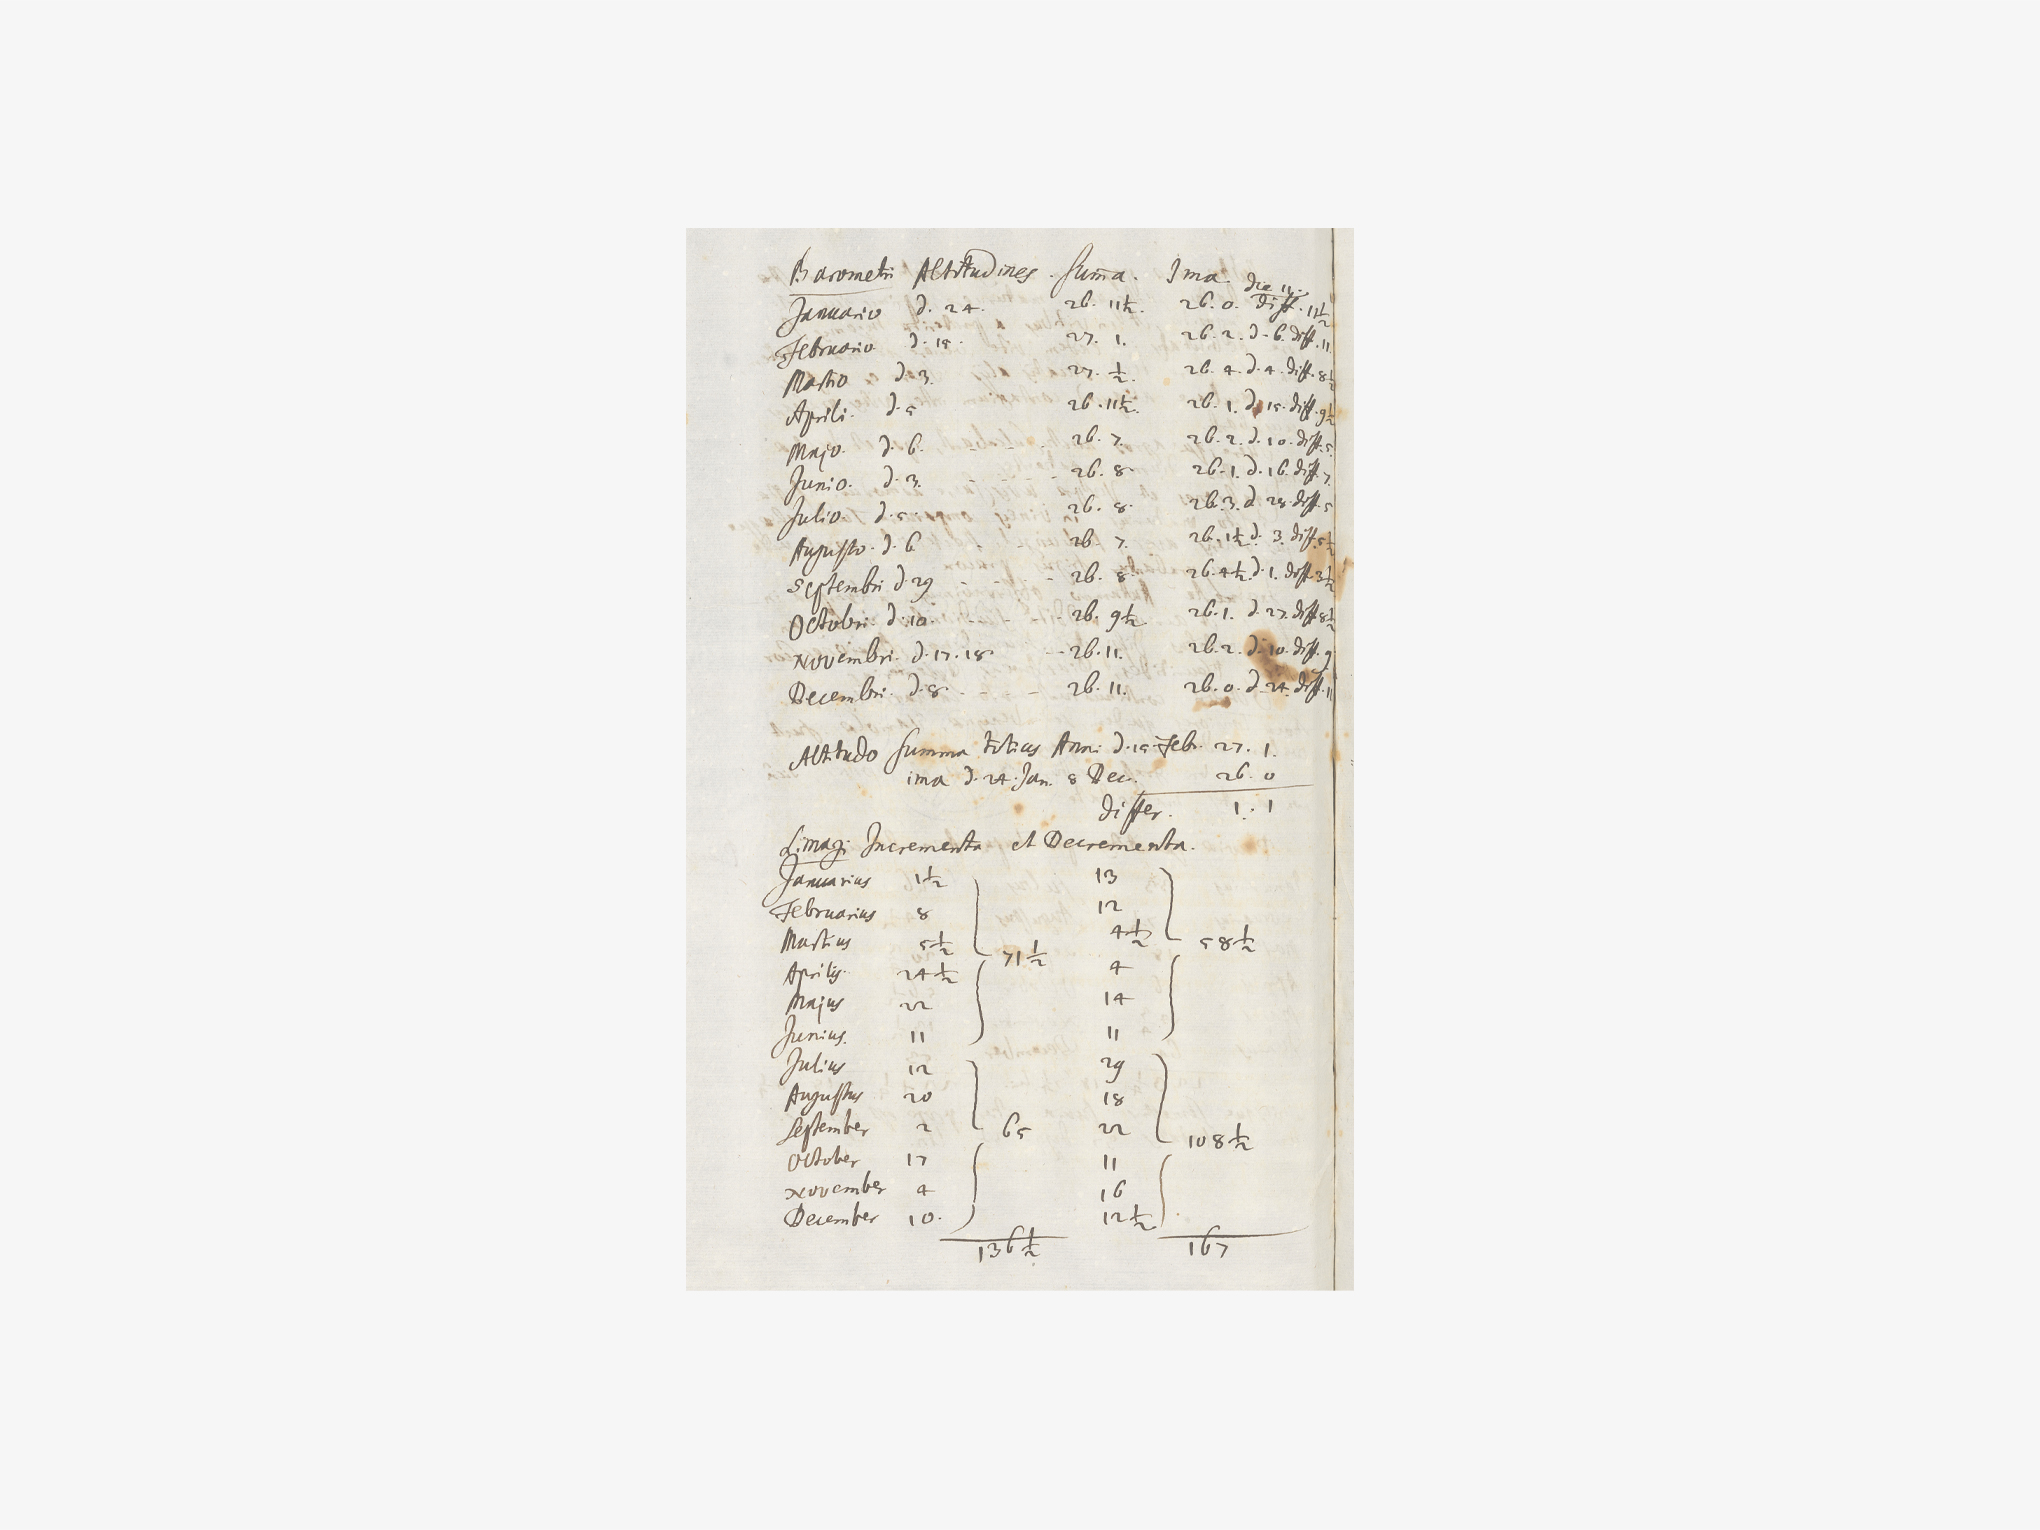 Barometri Altitudines. Suma. Ima. die 14.
Januario d. 24. 26. 11½. 26. 0. diff. 11½
Februario d. 15. 27. 1. 26. 2. d. 6. diff. 11
Martio d. 3. 27. ½. 26. 4. d. 4. diff. 8½
Aprili. d. 5 26. 11½. 26. 1. d. 15. diff. 9½
Majo. d. 6. - - - 26. 7. 26. 2. d. 10. diff. 5.
Junio. d. 3. - - - - 26. 8. 26. 1. d. 16. diff. 7
Julio. d. 5. 26. 8. 26. 3. d. 28. diff. 5
Augusto. d. 6 - - 26. 7. 26. 1½ d. 3. diff. 5½
Septembri d. 29 - - - - 26. 8. 26. 4½. d. 1. diff. 3½
Octobri. d. 10. - - - - 26. 9½ 26. 1. d. 27. diff. 8½
Novembri. d. 17. 18. - - 26. 11. 26. 2. d. 10. diff. 9
Decembri. d. 8. - - - 26. 11. 26. 0. d. 24. diff. 11
Altitudo Summa totius Anni d. 15. Febr. 27. 1.
ima d. 24. Jan. 8 Dec. 26. 0
differ. 1. 1
Limagi Incrementa et Decrementa.
Januarius 1½ 13
Februarius 8 12
Martius 5½ 4½ 58½
71½
Aprilis. 24½ 4
Majus 22 14
Junius. 11 11
Julius 12 29
Augustus 20 18
September 2 65 22 108½
October 17 11
November 4 16
December 10. 12½
136½ 167